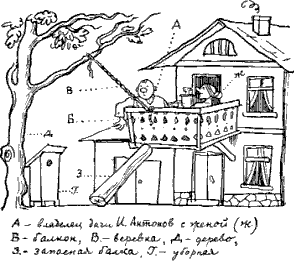 А
В
Б
Ж
Д
З
Г
А - владелец дачи И. Антонов с женой (ж)
Б - балкон, В. - веревка, Д. - дерево,
З. - запасная балка, Г. - уборная